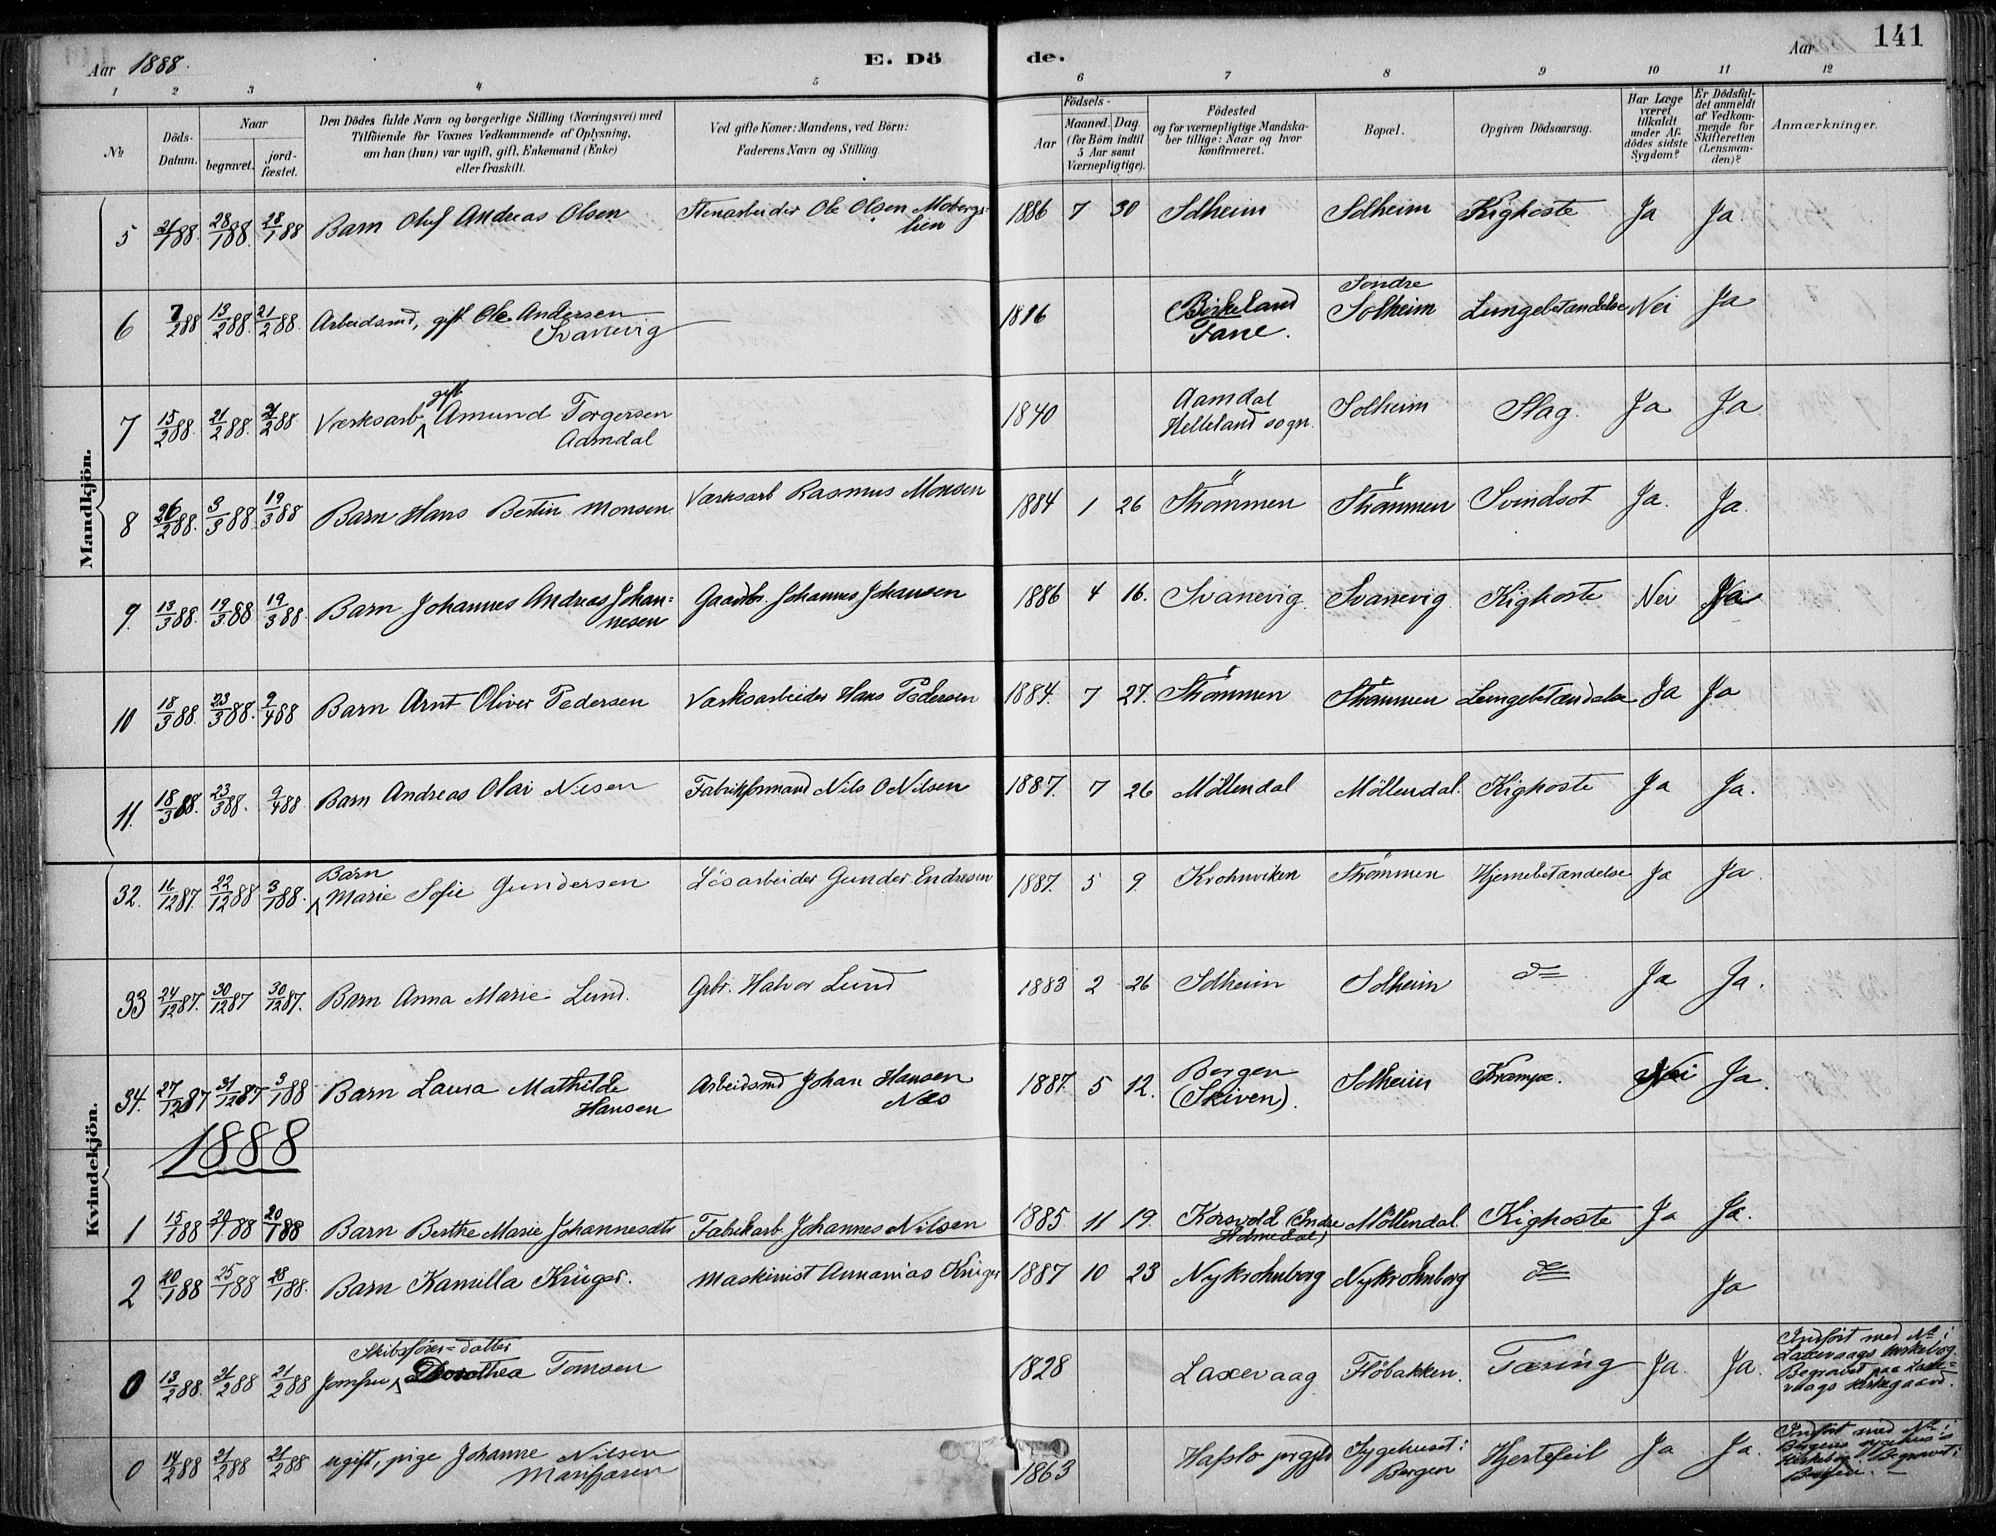 Aar 1888.
E. Döde.
Aar
141
1 2 3 4 5 6 7 8 9 10 11 12
No
Döds-Datum.
Naar
begravet.
jord-fæstet.
Den Dödes fulde Navn og borgerlige Stilling (Næringsvei) med
Tilföiende for Voxnes Vedkommende af Oplysning,
om han (hun) var ugift, gift, Enkemand (Enke)
eller fraskilt.
Ved gifte Koner: Mandens, ved Börn:
Faderens Navn og Stilling.
Födsels-
Aar
Maaned. Dag.
(for Börn indtil
5 Aar samt
Værnepligtige).
Födested
og for værnepligtige Mandska-
ber tillige: Naar og hvor
konfirmeret.
Bopæl.
Opgiven Dödsaarsag.
Har Læge
været
tilkaldt
under Af-
dødes sidste
Sygdom?
Er Dödsfal-
det anmeldt
af Vedkom-
mende for
Skifteretten
(Lensman-
den)?
Anmærkninger.
Mandkjön.
5 21/1 88. 28/1 88. 28/1 88 Barn Olaf Andreas Olsen Stenarbeider Ole Olsen Mobergs-
lien 1886 7 30 Solheim Solheim Kighoste Ja Ja.
6 7/2 88 13/2 88. 21/2 88. Arbeidsmd, gift Ole Andersen
Svanevig 1816 Birkeland
Fane. Søndre
Solheim Lungebetændelse Nei Ja
7 15/2 88. 21/2 88. 21/2 88 Værksarb. gift Amund Torgersen
Aamdal 1840 Aamdal
Helleland sogn. Solheim Slag. Ja Ja
8 26/2 88. 3/3 88. 19/3 88 Barn Hans Bertin Monsen Værksarb Rasmus Monsen 1884 1 26 Strømmen Strømmen Svindsot Ja. Ja.
9. 13/3 88. 19/3 88 19/3 88. Barn Johannes Andreas Johan-
nesen Gaardbr. Johannes Johansen 1886 4 16. Svanevig. Svanevig. Kighoste Nei Ja
10 18/3 88. 23/3 88. 2/4 88 Barn Arnt Oliver Pedersen Værksarbeider Hans Pedersen 1884. 7 27. Strømmen Strømmen Lungebetændelse Ja Ja
11. 18/3 88. 23/3 88. 2/4 88 Barn Andreas Olai Nilsen Fabrikformand Nils O Nilsen 1887. 7 26 Möllendal Möllendal. Kighoste Ja Ja.
Kvindekjön.
32. 16/12 87. 22/12 88 3/1 88. Barn
Marie Sofie Gundersen Løsarbeider Gunder Endresen 1887. 5 9. Krohnviken Strømmen Hjernebetændelse Ja Ja.
33 24/12 87. 30/12 87 30/12 87. Barn Anna Marie Lund. Gbr. Halvor Lund 1883 2 26 Solheim Solheim do Ja Ja.
34. 27/12 87 31/12 87 3/1 88 Barn Laura Mathilde
Hansen Arbeidsmd Johan Hansen
Næs 1887. 5 12. Bergen
(Skiven). Solheim Krampe. Nei Ja.
1888
1 15/1 88 20/1 88 20/1 88 Barn Berthe Marie Johannesdtr Fabrikarb Johannes Nilsen 1885. 11 19. Korsvold (Indre
Holmedal) Möllendal. Kighoste Ja Ja.
2 20/1 88 25/1 88 28/1 88. Barn Kamilla Krüger. Maskinist Annanias Krüger 1887 10 23 Nykrohnborg Nykrohnborg do Ja
0 13/2 88. 21/2 88 21/2 88 Skibsfører=datter
Jomfru Dorothea Tomsen 1828 Laxevaag Flöbakken. Tæring Ja. Ja. Indført med No i
Laxevaags kirkebog.
Begravet paa Laxe-
vaags kirkegaard.
0 14/2 88 21/2 88 21/2 88 ugift, pige Johanne Nilsen
Marifjæren 1863 Hafslo prgjld Sygehuset i
Bergen Hjertefeil Ja Ja. Indført med No i
Bergens sygehus's
kirkebog. Begravet i
Bergen. —